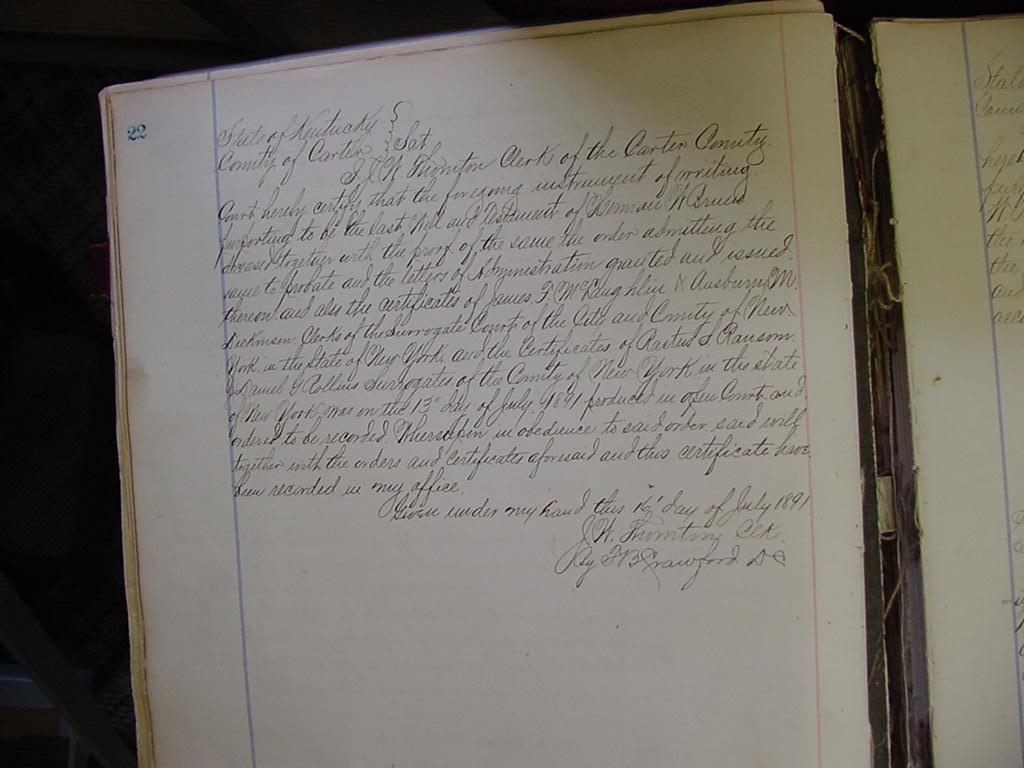 22
State of Kentucky
County of Carter } Sct
I J. W. Thornton Clerk of the Carter County
Court hereby certify that the foregoing instrument of writing
purporting to be the last Will and Testament of Herman W Bruen
deceased together with the proof of the same the order admitting the
same to probate and the letters of Administration granted and issued
thereon and also the certificates of James F. McLaughlin & Ausburn M.
Dickinson Clerks of the Surrogate Court of the City and County of New
York in the State of New York and the Certificates of Rastus S Ransom
& Daniel G Rollins Surrogates of the County of New York in the State
of New York was on the 13" day of July 1891 produced in open Court and
ordered to be recorded. Whereupon in obedience to said order said will
together with the orders and certificates aforesaid and this certificate have
been recorded in my office.
Given under my hand this day of July 1891
J. W. Thornton Clk
By Crawford DC
State
Coun
hereb
the
the
and